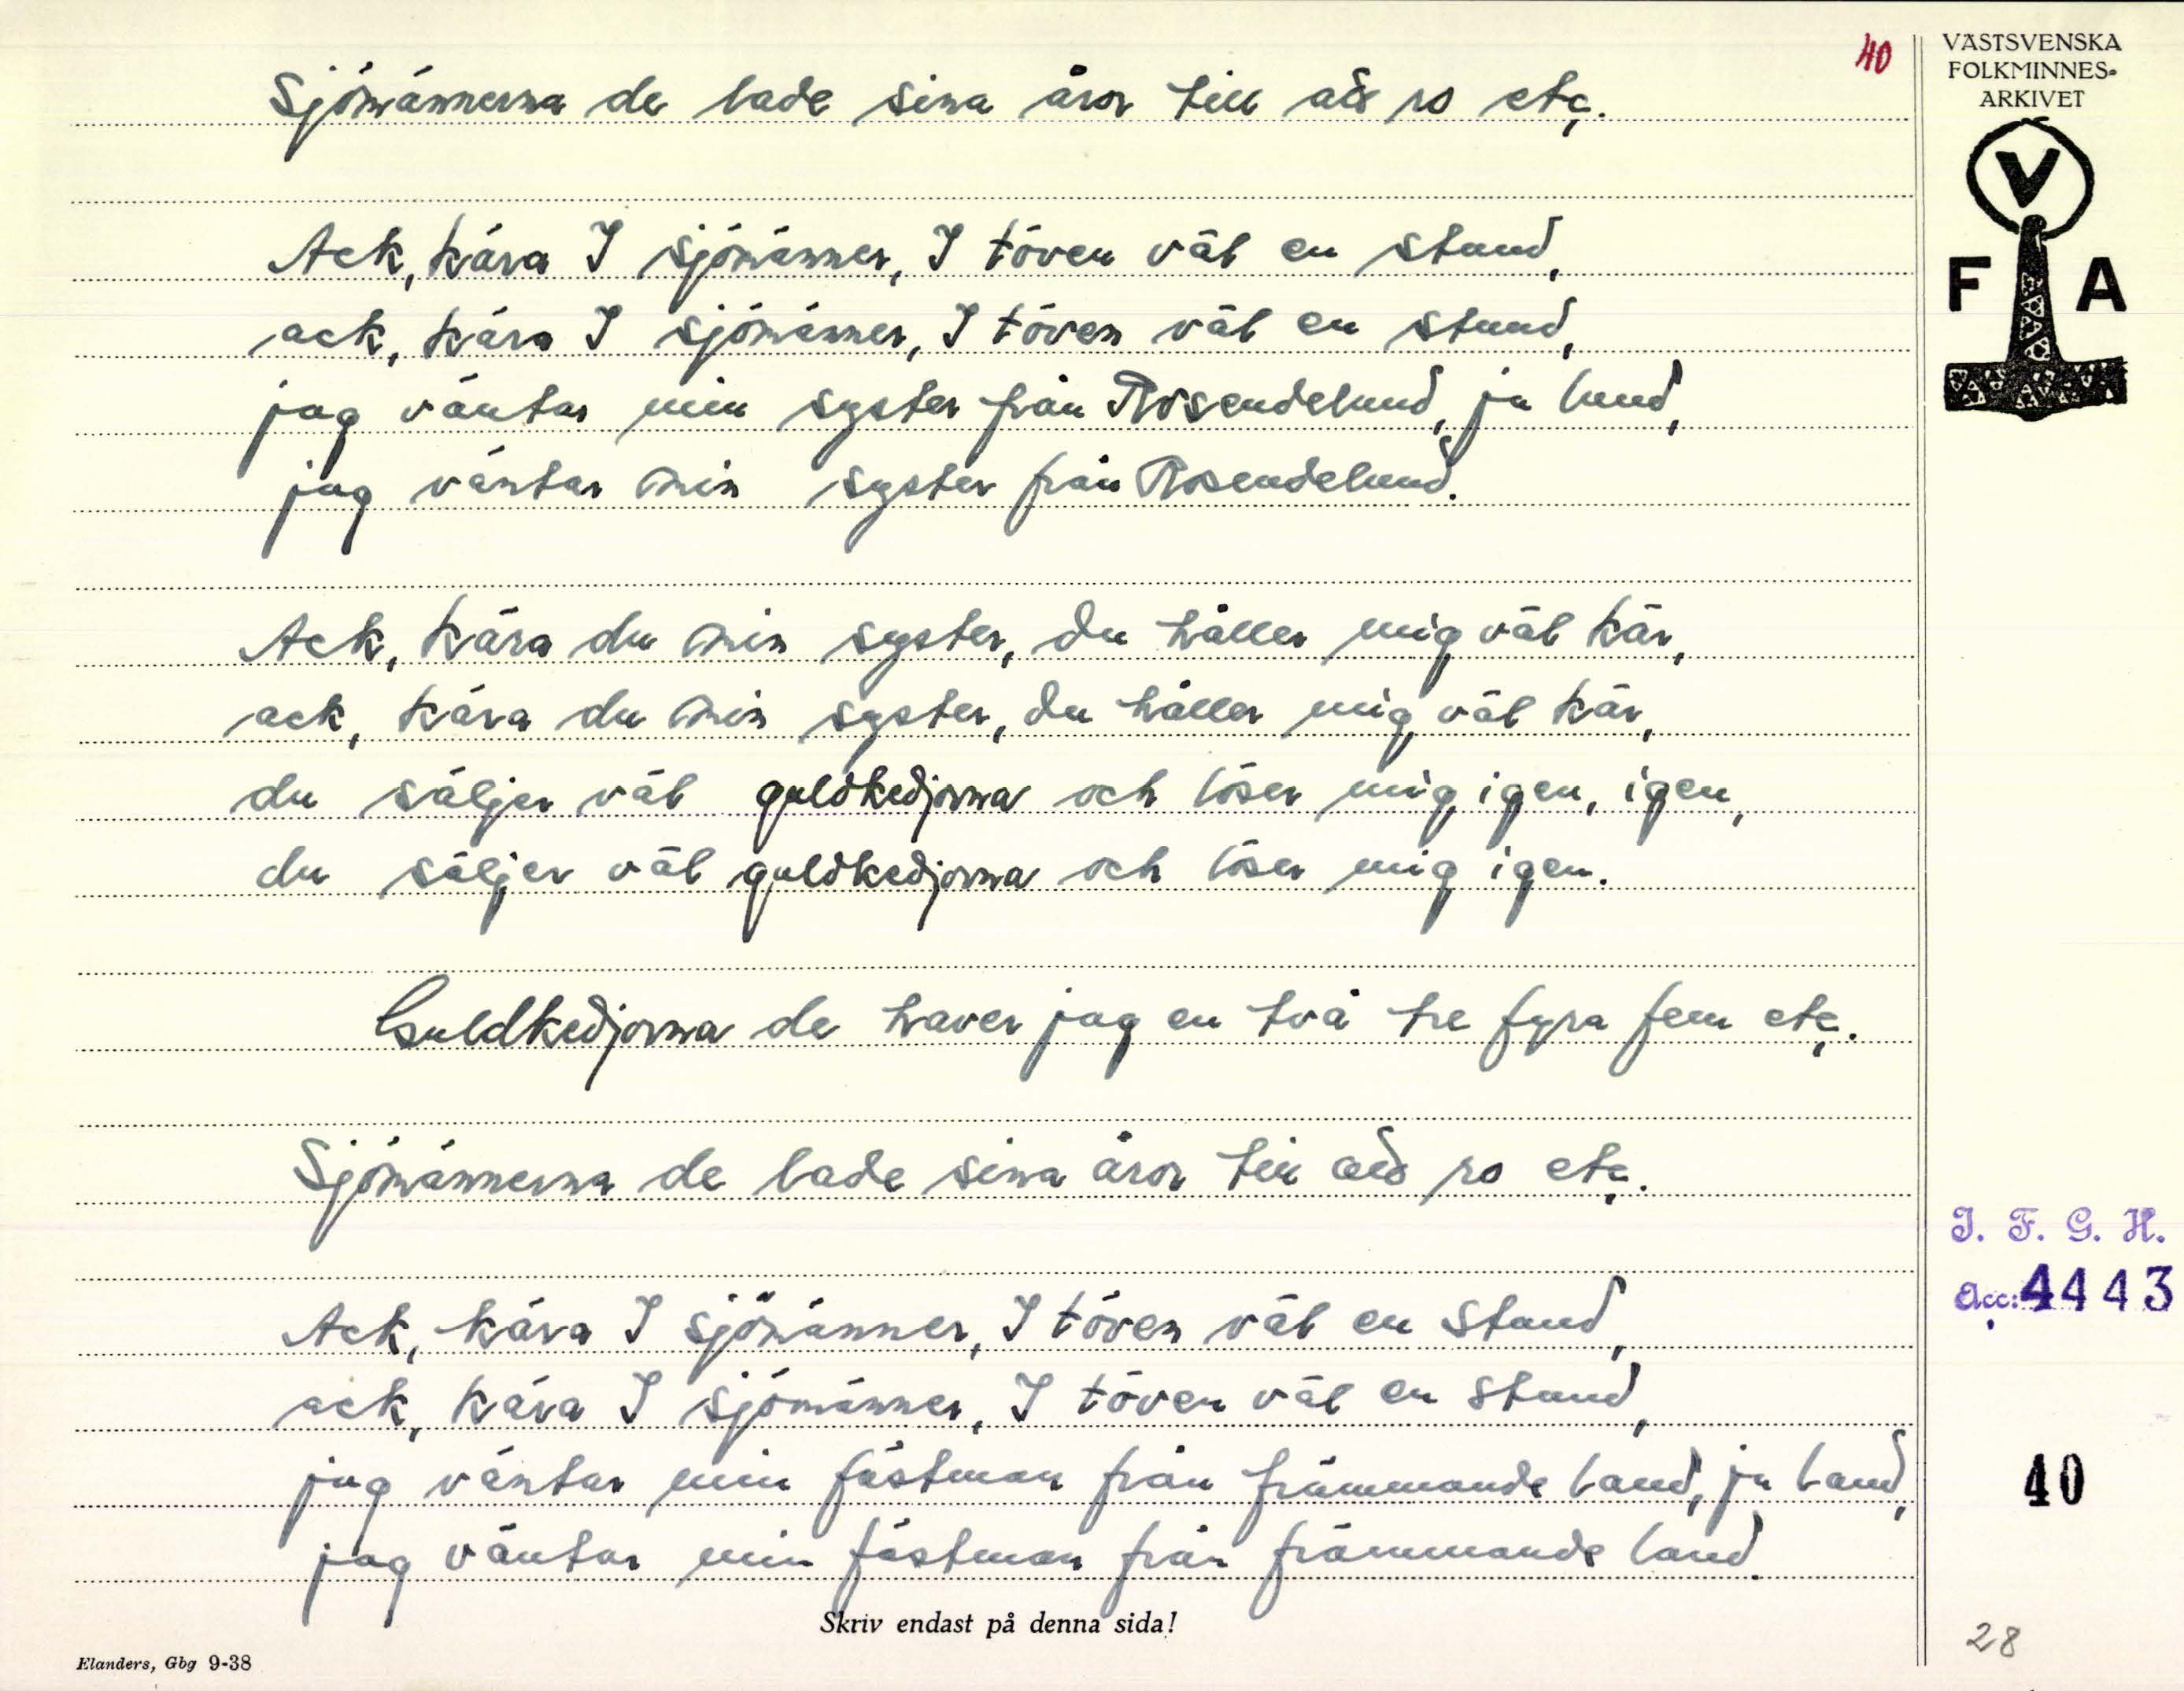 40
Sjömännerna de lade sina åror till att ro etc.
Ack, kära I sjömänner, I töven väl en stund,
ack, kära I sjömänner, I töven väl en stund,
jag väntar min syster från Rosendelund, ja lund,
jag väntar min syster från Rosendelund.
Ack, kära du min syster, du håller mig väl kär,
ack, kära du min syster, du håller mig väl kär,
du säljer väl guldkedjorna och löser mig igen, igen,
du säljer väl guldkedjorna och löser mig igen.
Guldkedjorna de haver jag en två tre fyra fem etc.
Sjömännerna de lade sina åror till att ro etc.
Ack, kära I sjömänner, I töven väl en stund,
ack, kära I sjömänner, I töven väl en stund,
jag väntar min fästman från främmande land, ja land,
jag väntar min fästman från främmande land.
Skriv endast på denna sida!
Elanders, Gbg 9-38
VÄSTSVENSKA
FOLKMINNES-
ARKIVET
V
F A
I. F. G. H.
Acc: 4443
40
28